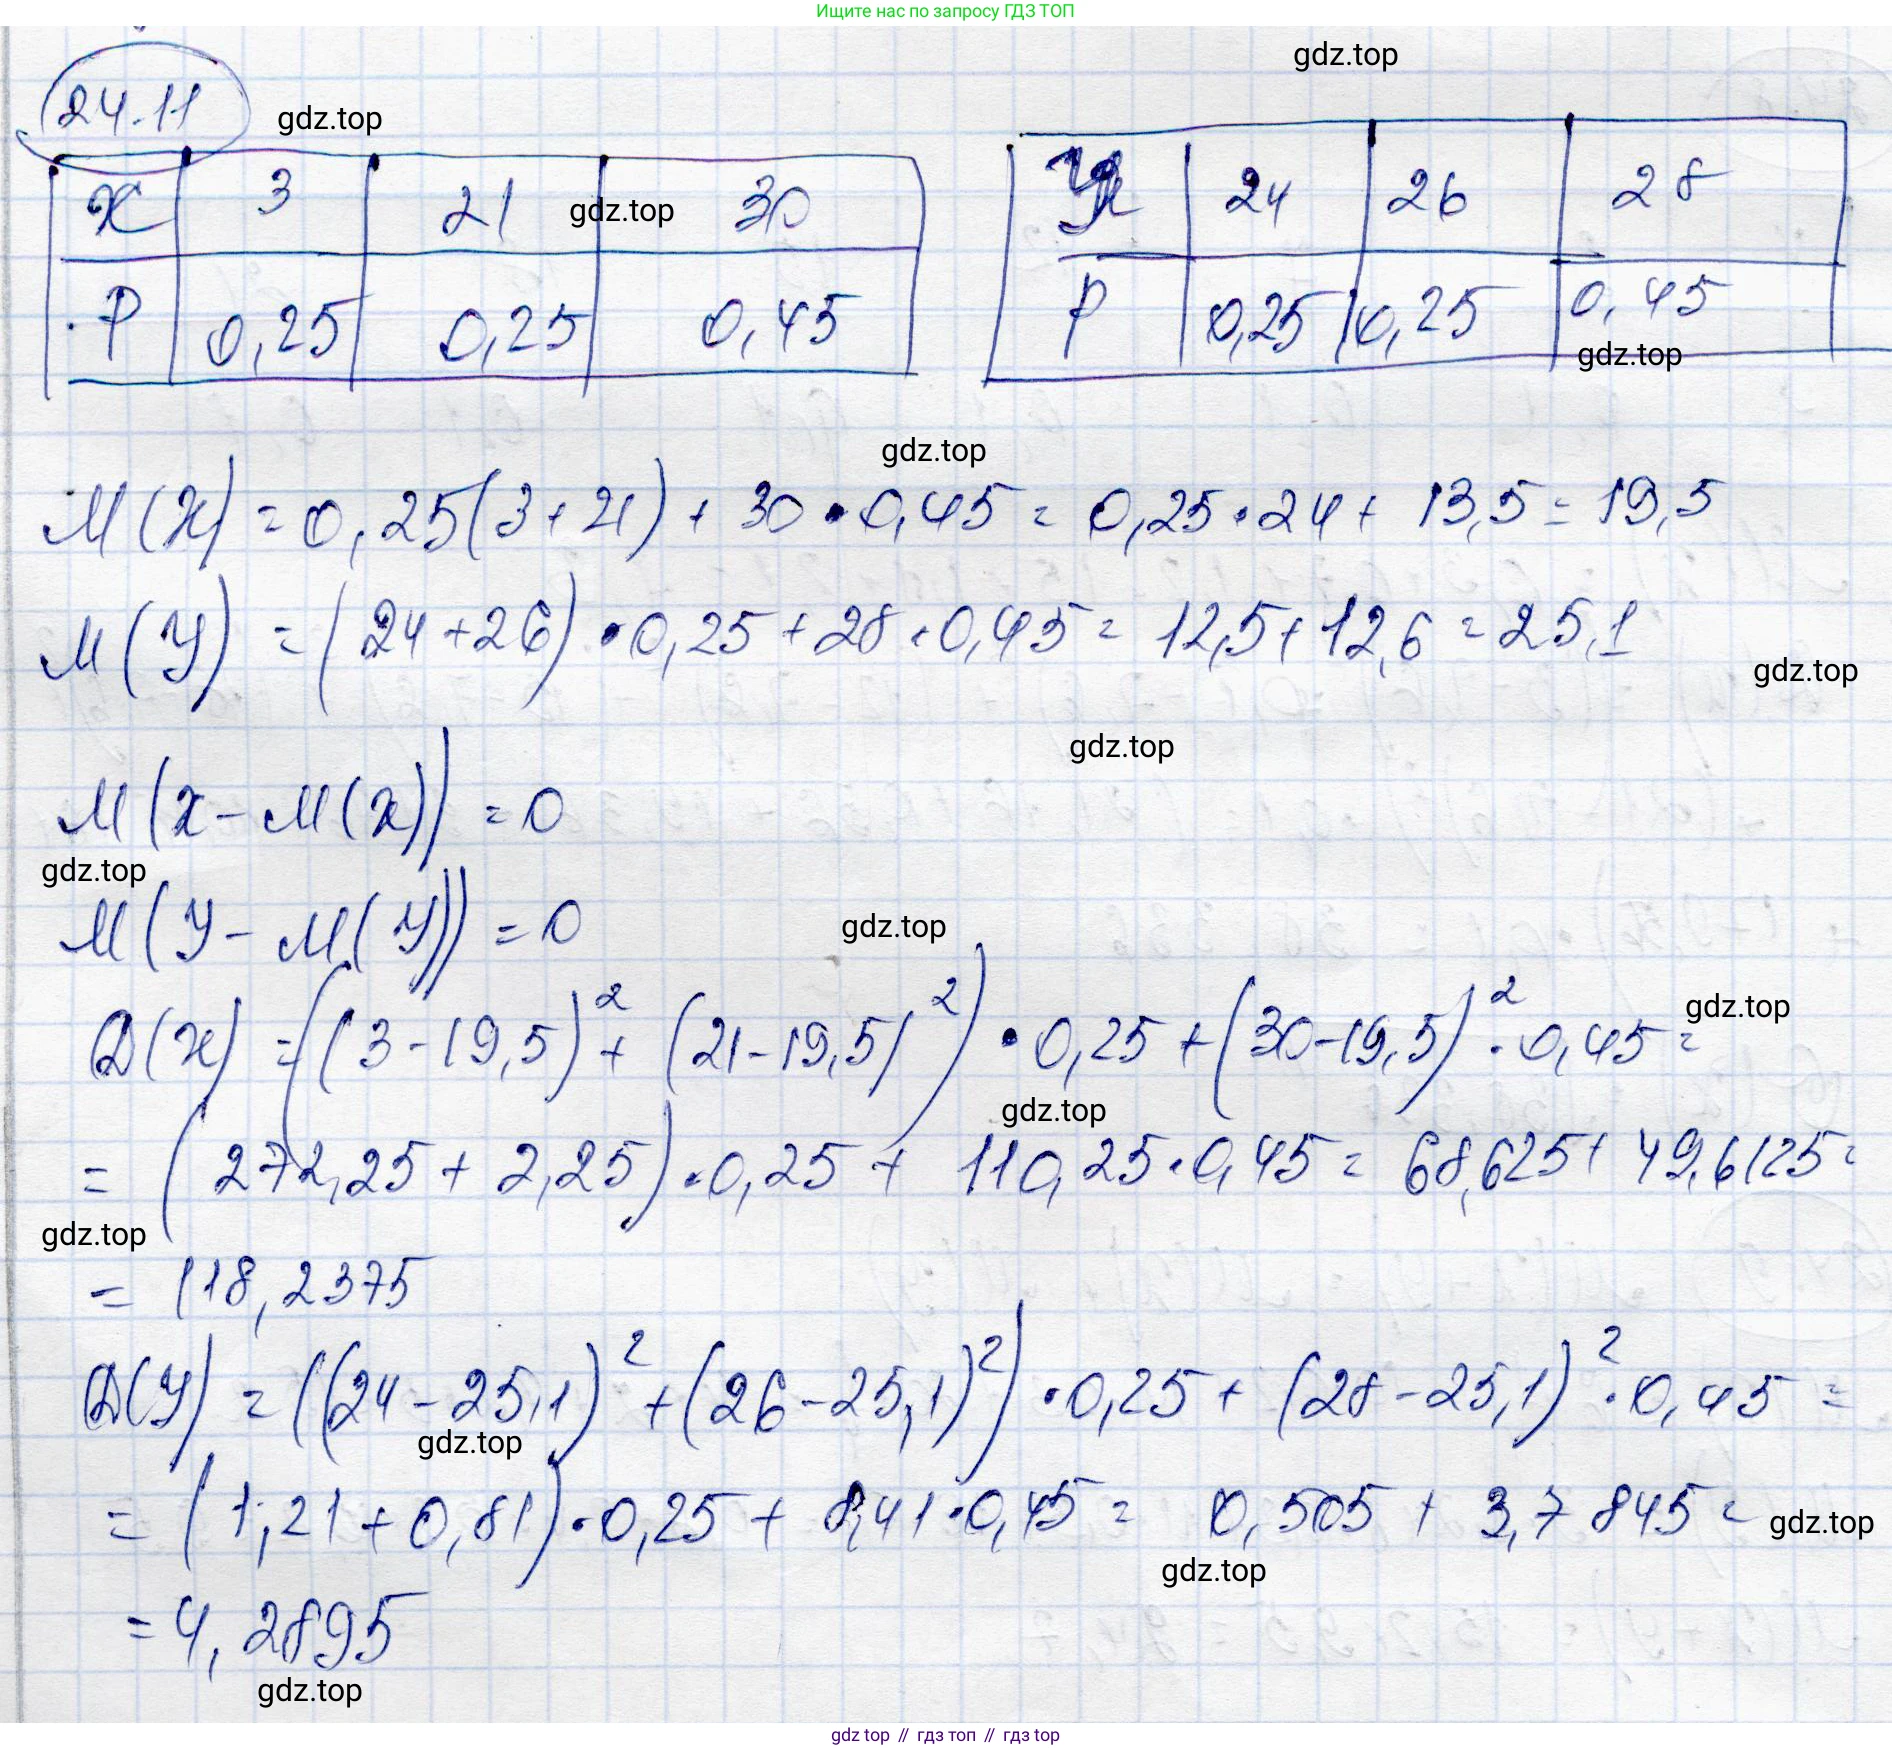 Ищите нас по запросу ГДЗ ТОП
gdz.top
24.11
gdz.top
X 3 21 30
gdz.top
P 0,25 0,25 0,45
У 24 26 28
P 0,25 0,25 0,45
gdz.top
gdz.top
M(X) = 0,25(3+21) + 30 • 0,45 = 0,25 • 24 + 13,5 = 19,5
M(У) = (24+26) • 0,25 + 28 • 0,45 = 12,5 + 12,6 = 25,1
gdz.top
gdz.top
M(X - M(X)) = 0
gdz.top
M(У - M(У)) = 0
gdz.top
gdz.top
D(X) = ((3-19,5)² + (21-19,5)²) • 0,25 + (30-19,5)² • 0,45 =
gdz.top
= (272,25 + 2,25) • 0,25 + 110,25 • 0,45 = 68,625 + 49,6125 =
gdz.top
= 118,2375
D(У) = ((24-25,1)² + (26-25,1)²) • 0,25 + (28-25,1)² • 0,45 =
gdz.top
= (1,21 + 0,81) • 0,25 + 8,41 • 0,45 = 0,505 + 3,7845 =
gdz.top
gdz.top
= 4,2895
gdz.top
gdz top // гдз топ // гдз top